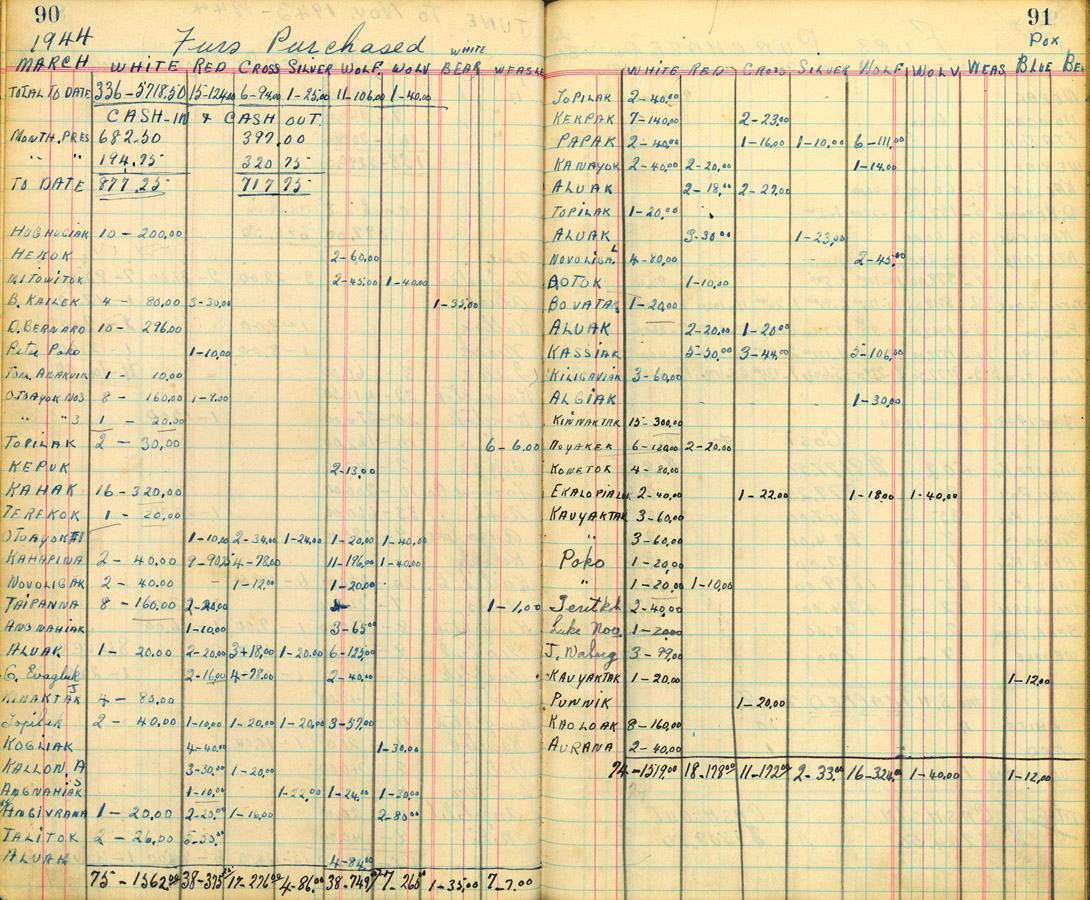 90
1944
Furs Purchased
WHITE
MARCH WHITE RED CROSS SILVER WOLF WOLV BEAR WEASLE
TOTAL TO DATE 336-5718.50 15-124.00 6-94.00 1-25.00 11-106.00 1-40.00
CASH-IN & CASH OUT.
MONTH. PRES 682.50 397.00
" " 194.75 320 75
TO DATE 877.25 717 75
10 - 200.00
HEKOK 2-60.00
MITOWITOK 2-45.00 1-40.00
B. KAILEK 4 - 80.00 3-30.00 1-35.00
D. BERNARD 15 - 296.00
Pete Poko 1-10.00
1 - 10.00
OTOAYOK NO3 8 - 160.00
" "3 1 - 20.00
TOPILAK 2 - 30.00 6-6.00
KEPUK 2-13.00
KAHAK 16-320.00
TEREKOK 1 - 20.00
OTOAYOK #1 1-10.00 2-34.00 1-24.00 1-20.00 1-40.00
KAHAPINA 2 - 40.00 4-78.00 11-196.00 1-40.00
NOVOLIGAK 2 - 40.00 1-12.00 1-20.00
TAIPANNA 8 - 160.00 2-20.00 1-1.00
ANGNAHIAK 1-10.00 3-65.00
ALUAK 1 - 20.00 2-20.00 1-20.00 6-125.00
2-16.00 4-78.00 2-40.00
KINAKTAK 4 - 80.00
Topilak 2 - 40.00 1-10.00 1-20.00 1-20.00 3-57.00
KOGLIAK 4-40.00 1-30.00
KALLON. A 3-30.00 1-20.00
ANGNAHIAK 1-10.00 1-22.00 1-24.00 1-30.00
ANGIVRANA 1 - 20.00 2-20.00 1-16.00 2-80.00
TALITOK 2 - 26.00 5-50.00
ALUAK 4-84.00
75 - 1562.00 38-375 17-276.00 4-86.00 38-749 7-260 1-35.00 7-7.00
91
Pox
WHITE RED CROSS SILVER WOLF WOLV WEAS BLUE
TOPILAK 2-40.00
KEKPAK 7-140.00 2-23.00
PAPAK 2-40.00 1-16.00 1-10.00 6-111.00
KANAYOK 2-40.00 2-20.00 1-14.00
ALUAK 2-18.00 2-27.00
TOPILAK 1-20.00
ALUAK 3-30.00 1-23.00
NOVOLIGA 4-80.00 2-45.00
AOTOK 1-10.00
BOVATAS 1-20.00
ALUAK 2-20.00 1-20.00
KASSIAK 5-50.00 3-44.00 5-106.00
KILIGAVIAK 3-60.00
ALGIAK 1-30.00
KINNAKTAK 15-300.00
NOYAKEK 6-120.00 2-20.00
KOMETOK 4-80.00
EKALOPIALUK 2-40.00 1-22.00 1-18.00 1-40.00
KAUYAKTAK 3-60.00
" 3-60.00
Poko 1-20.00
" 1-20.00 1-10.00
2-40.00
Luke Noo 1-20.00
3-99.00
KAUYAKTAK 1-20.00 1-12.00
PUNNIK 1-20.00
KAOLOAK 8-160.00
AURANA 2-40.00
74-1519.00 18-178.00 11-172.00 2-33.00 16-324.00 1-40.00 1-12.00